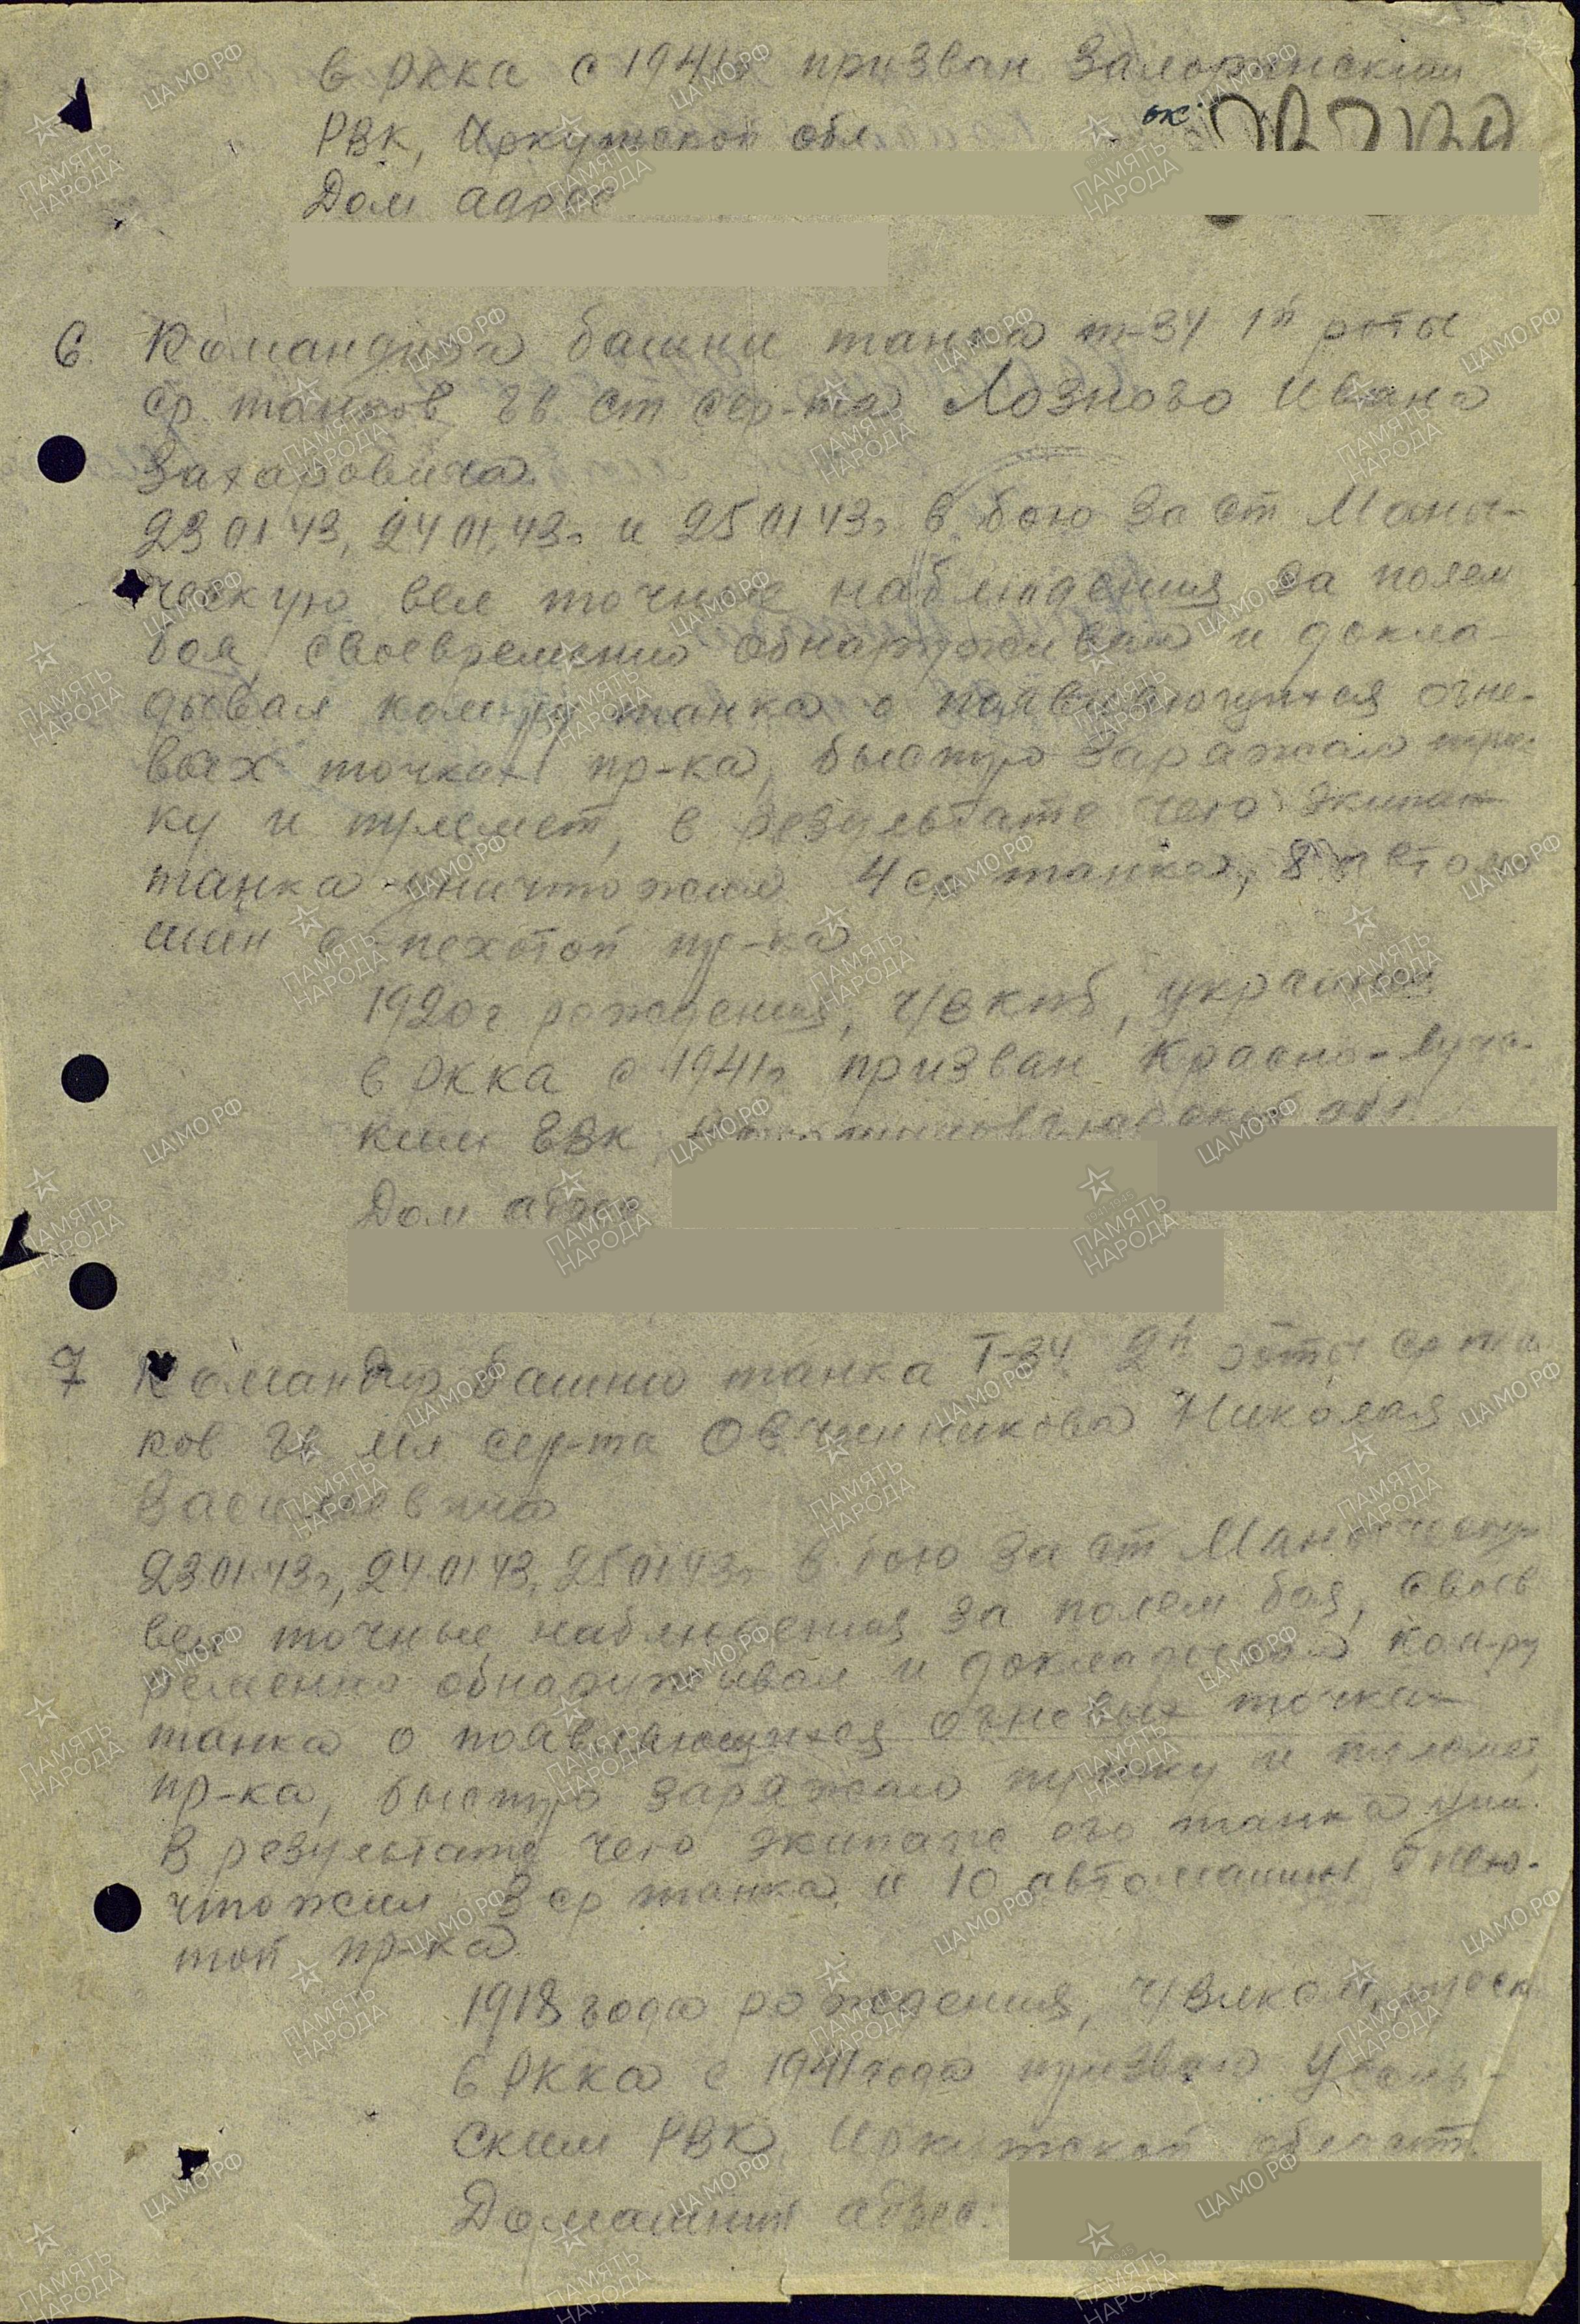 в РККА с 1941г призван Заларинским
РВК, Иркутской обл
Дом адрес
6. Командира башни танка т-34 1й роты
ср. танков гв. ст сер-та Лозного Ивана
Захаровича
23 01 43, 24 01, 43г и 25 01 43г в бою за ст Маны-
ческую вел точные наблюдения за полем
боя, своевременно обнаруживал и докла-
дывал ком-ру танка о появляющихся огне-
вых точках пр-ка, быстро заряжал пуш-
ку и пулемет, в результате чего экипаж
танка уничтожил 4 ср танка, 8 автома
шин с пехотой пр-ка
1920г рождения, ч/вкпб, украинец
в РККА с 1941г призван Красно-Луч-
ским ГВК, Ворошиловградской обл
Дом адрес
7 Командир башни танка Т-34 2й роты ср тан
ков гв мл сер-та Овчинникова Николая
Васильевича
23.01.43г, 24.01 43, 25 01 43г в бою за ст Манычскую
вел точные наблюдения за полем боя, своев
ременно обнаруживал и докладывал ком-ру
танка о появляющихся огневых точках
пр-ка, быстро заряжал пушку и пулемет,
в результате чего экипаж его танка уни
чтожил 3 ср танка и 10 автомашин с пехо-
той пр-ка
1918 года рождения, ч/влксм, русск
в РККА с 1941 года призван Усоль-
ским РВК, Иркутской област.
Домашний адрес: